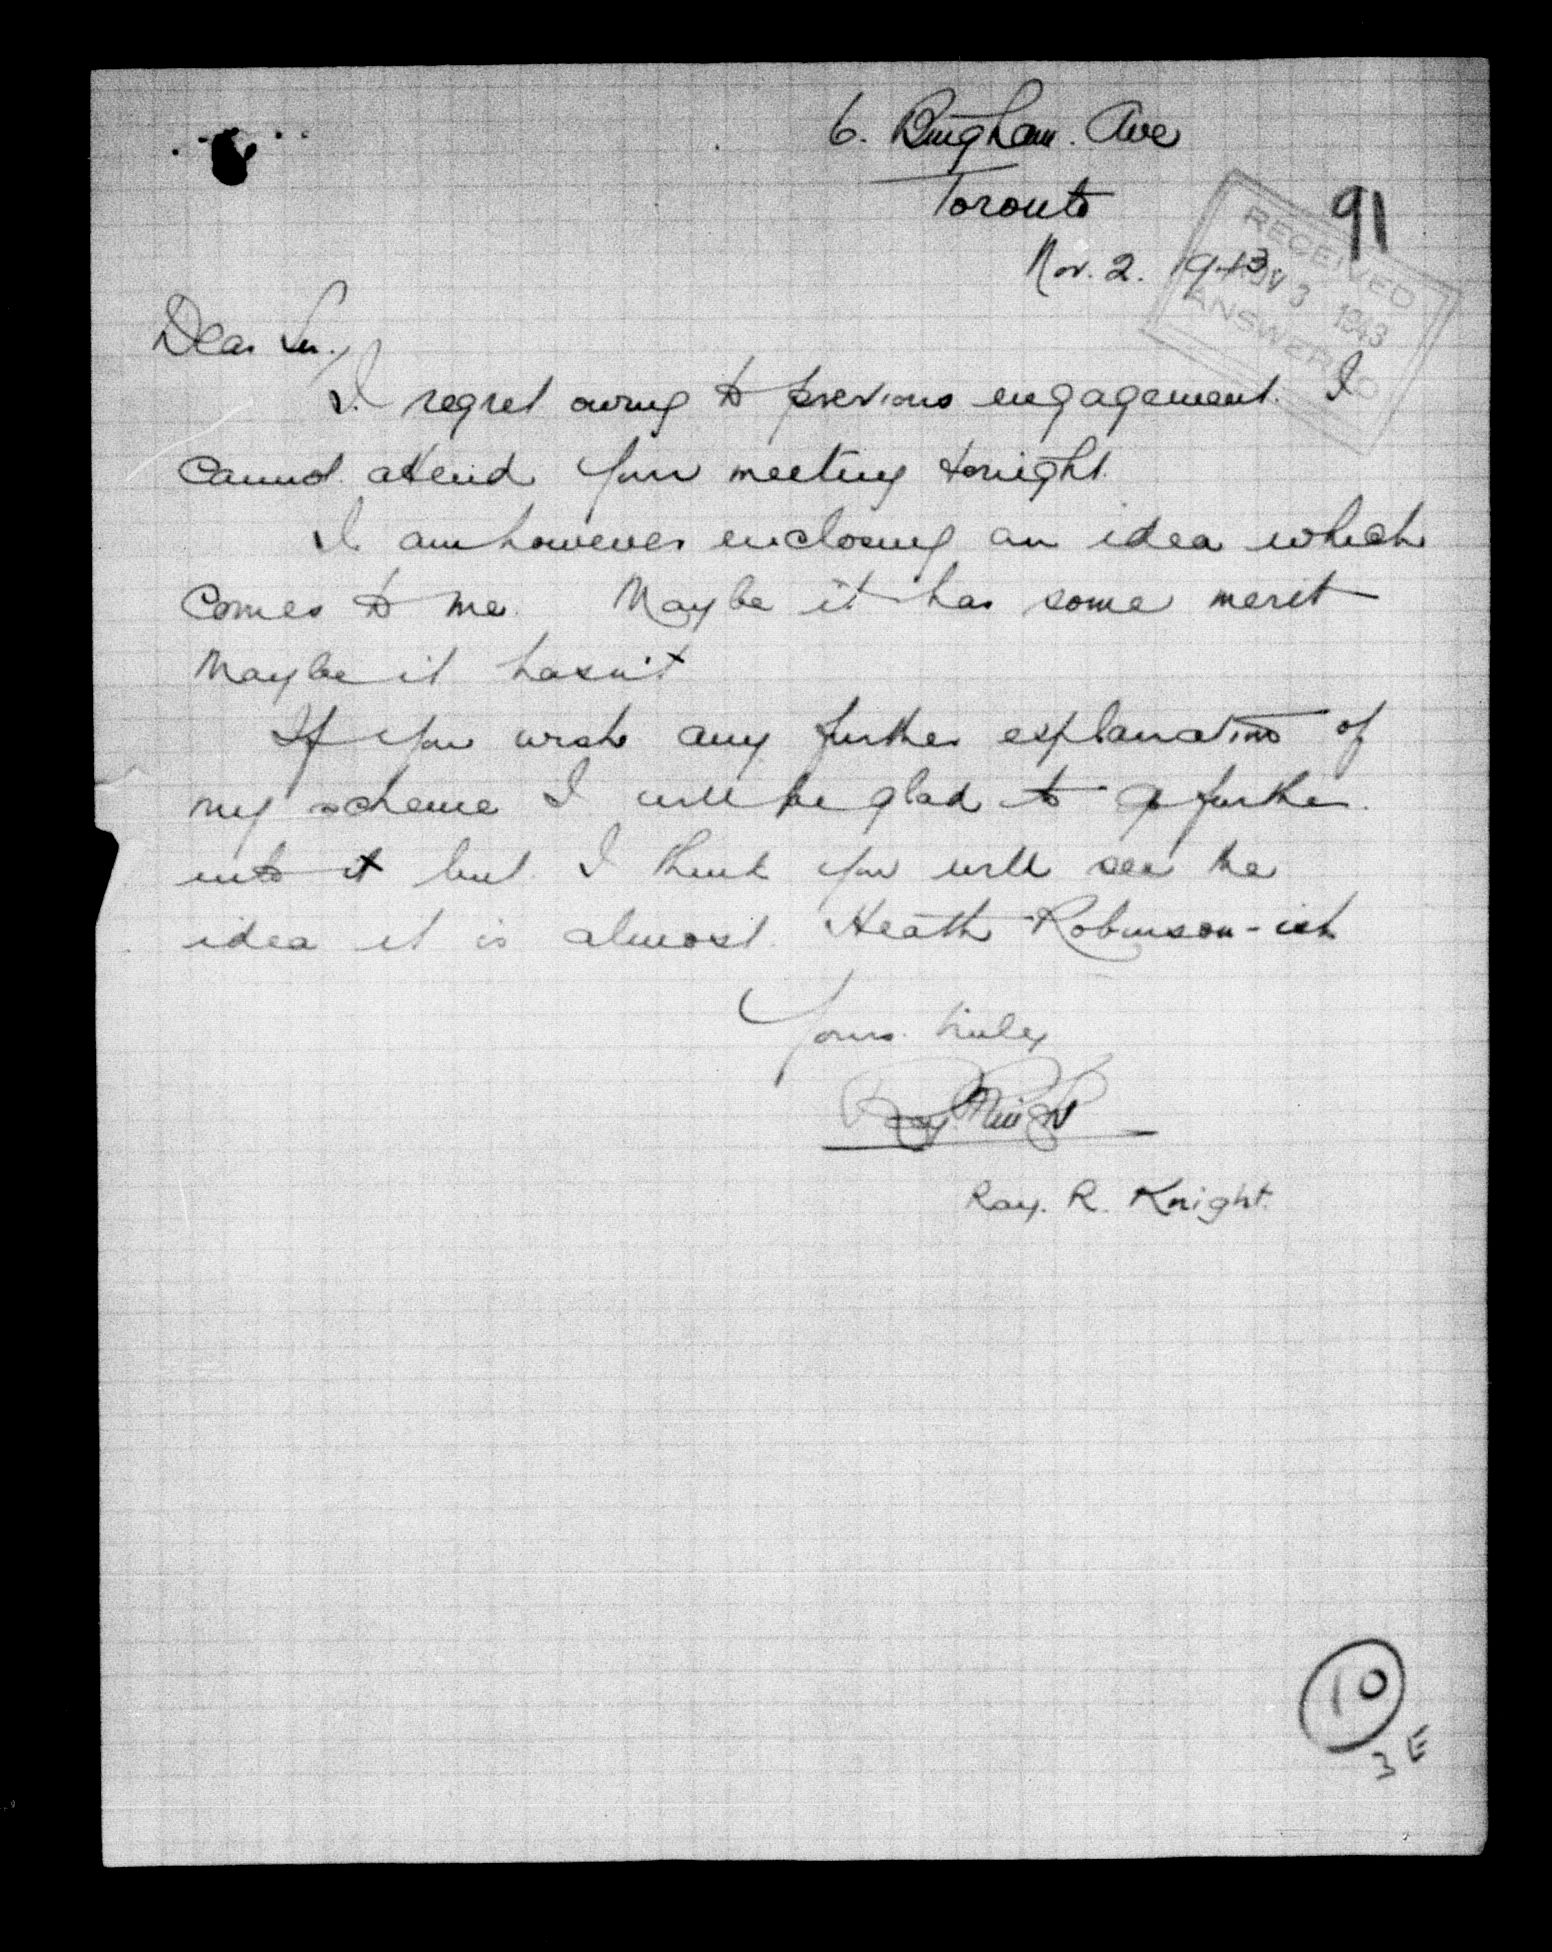 6. Bingham. Ave
Toronto
91
Nov. 2. 1943
RECEIVED
NOV 3 1943
ANSWERED
Dear Sir.,
I regret owing to previous engagement. I
cannot attend your meeting tonight.
I am however enclosing an idea which
comes to me. Maybe it has some merit
Maybe it hasn't
If you wish any further explanation of
my scheme I will be glad to go further.
into it but I think you will see the
idea it is almost Heath Robinson-ish
Yours truly
Ray Knight
Ray. R. Knight.
10
3 E